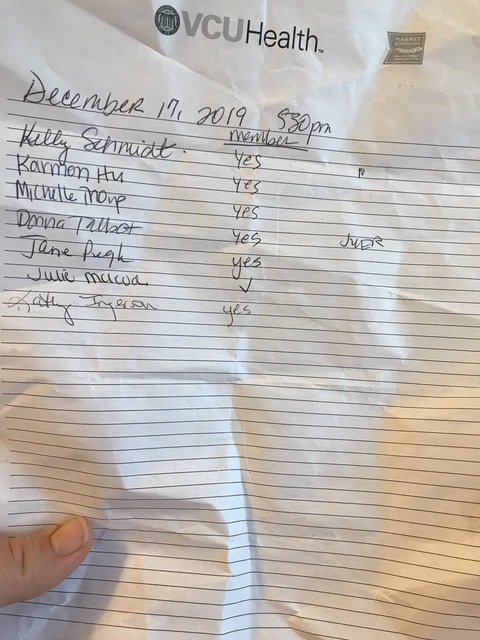 VCUHealth™
MAGNET
December 17, 2019 530pm
member
Kelly Schmidt. Yes
Karmon Hu Yes
Michelle Yes
Donna Talbot Yes
Jane Pugh yes
Julie ✓
Kathy Ingerson yes